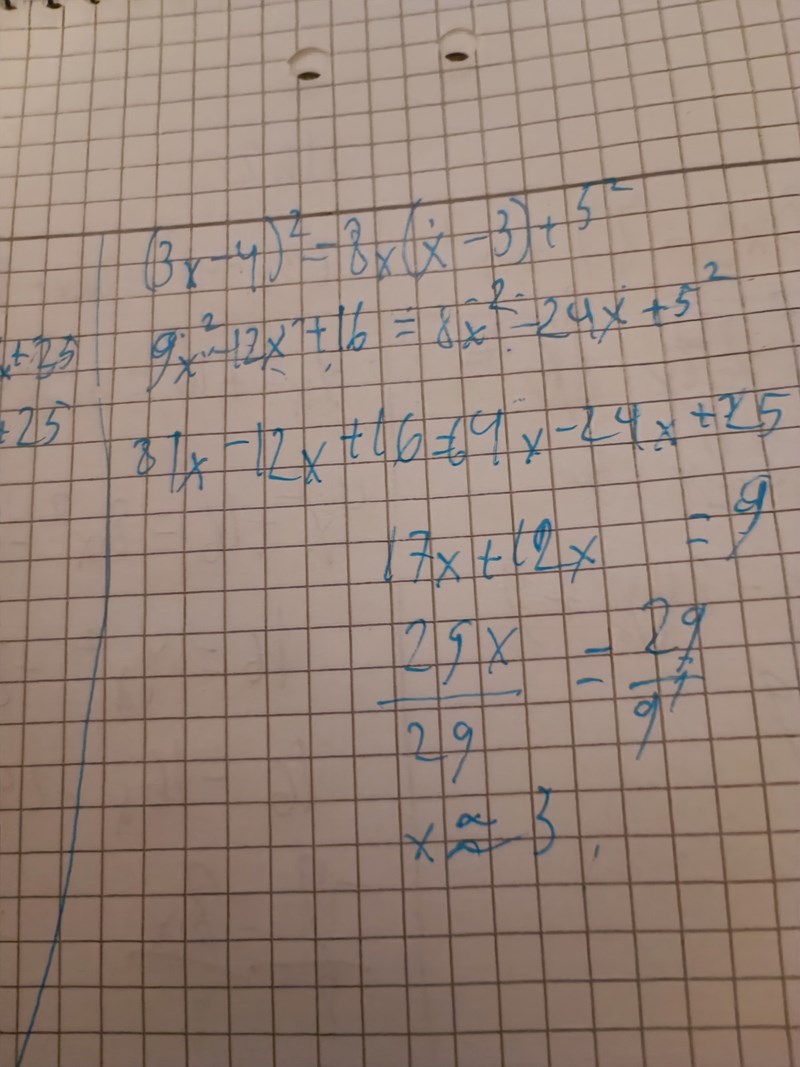 (3x-4)² = 8x(x-3)+5²
x+25
9x²-12x+16 = 8x²-24x+5²
+25
81x-12x+16=64x-24x+25
17x+12x = 9
29x = 29
29 9
x≈3